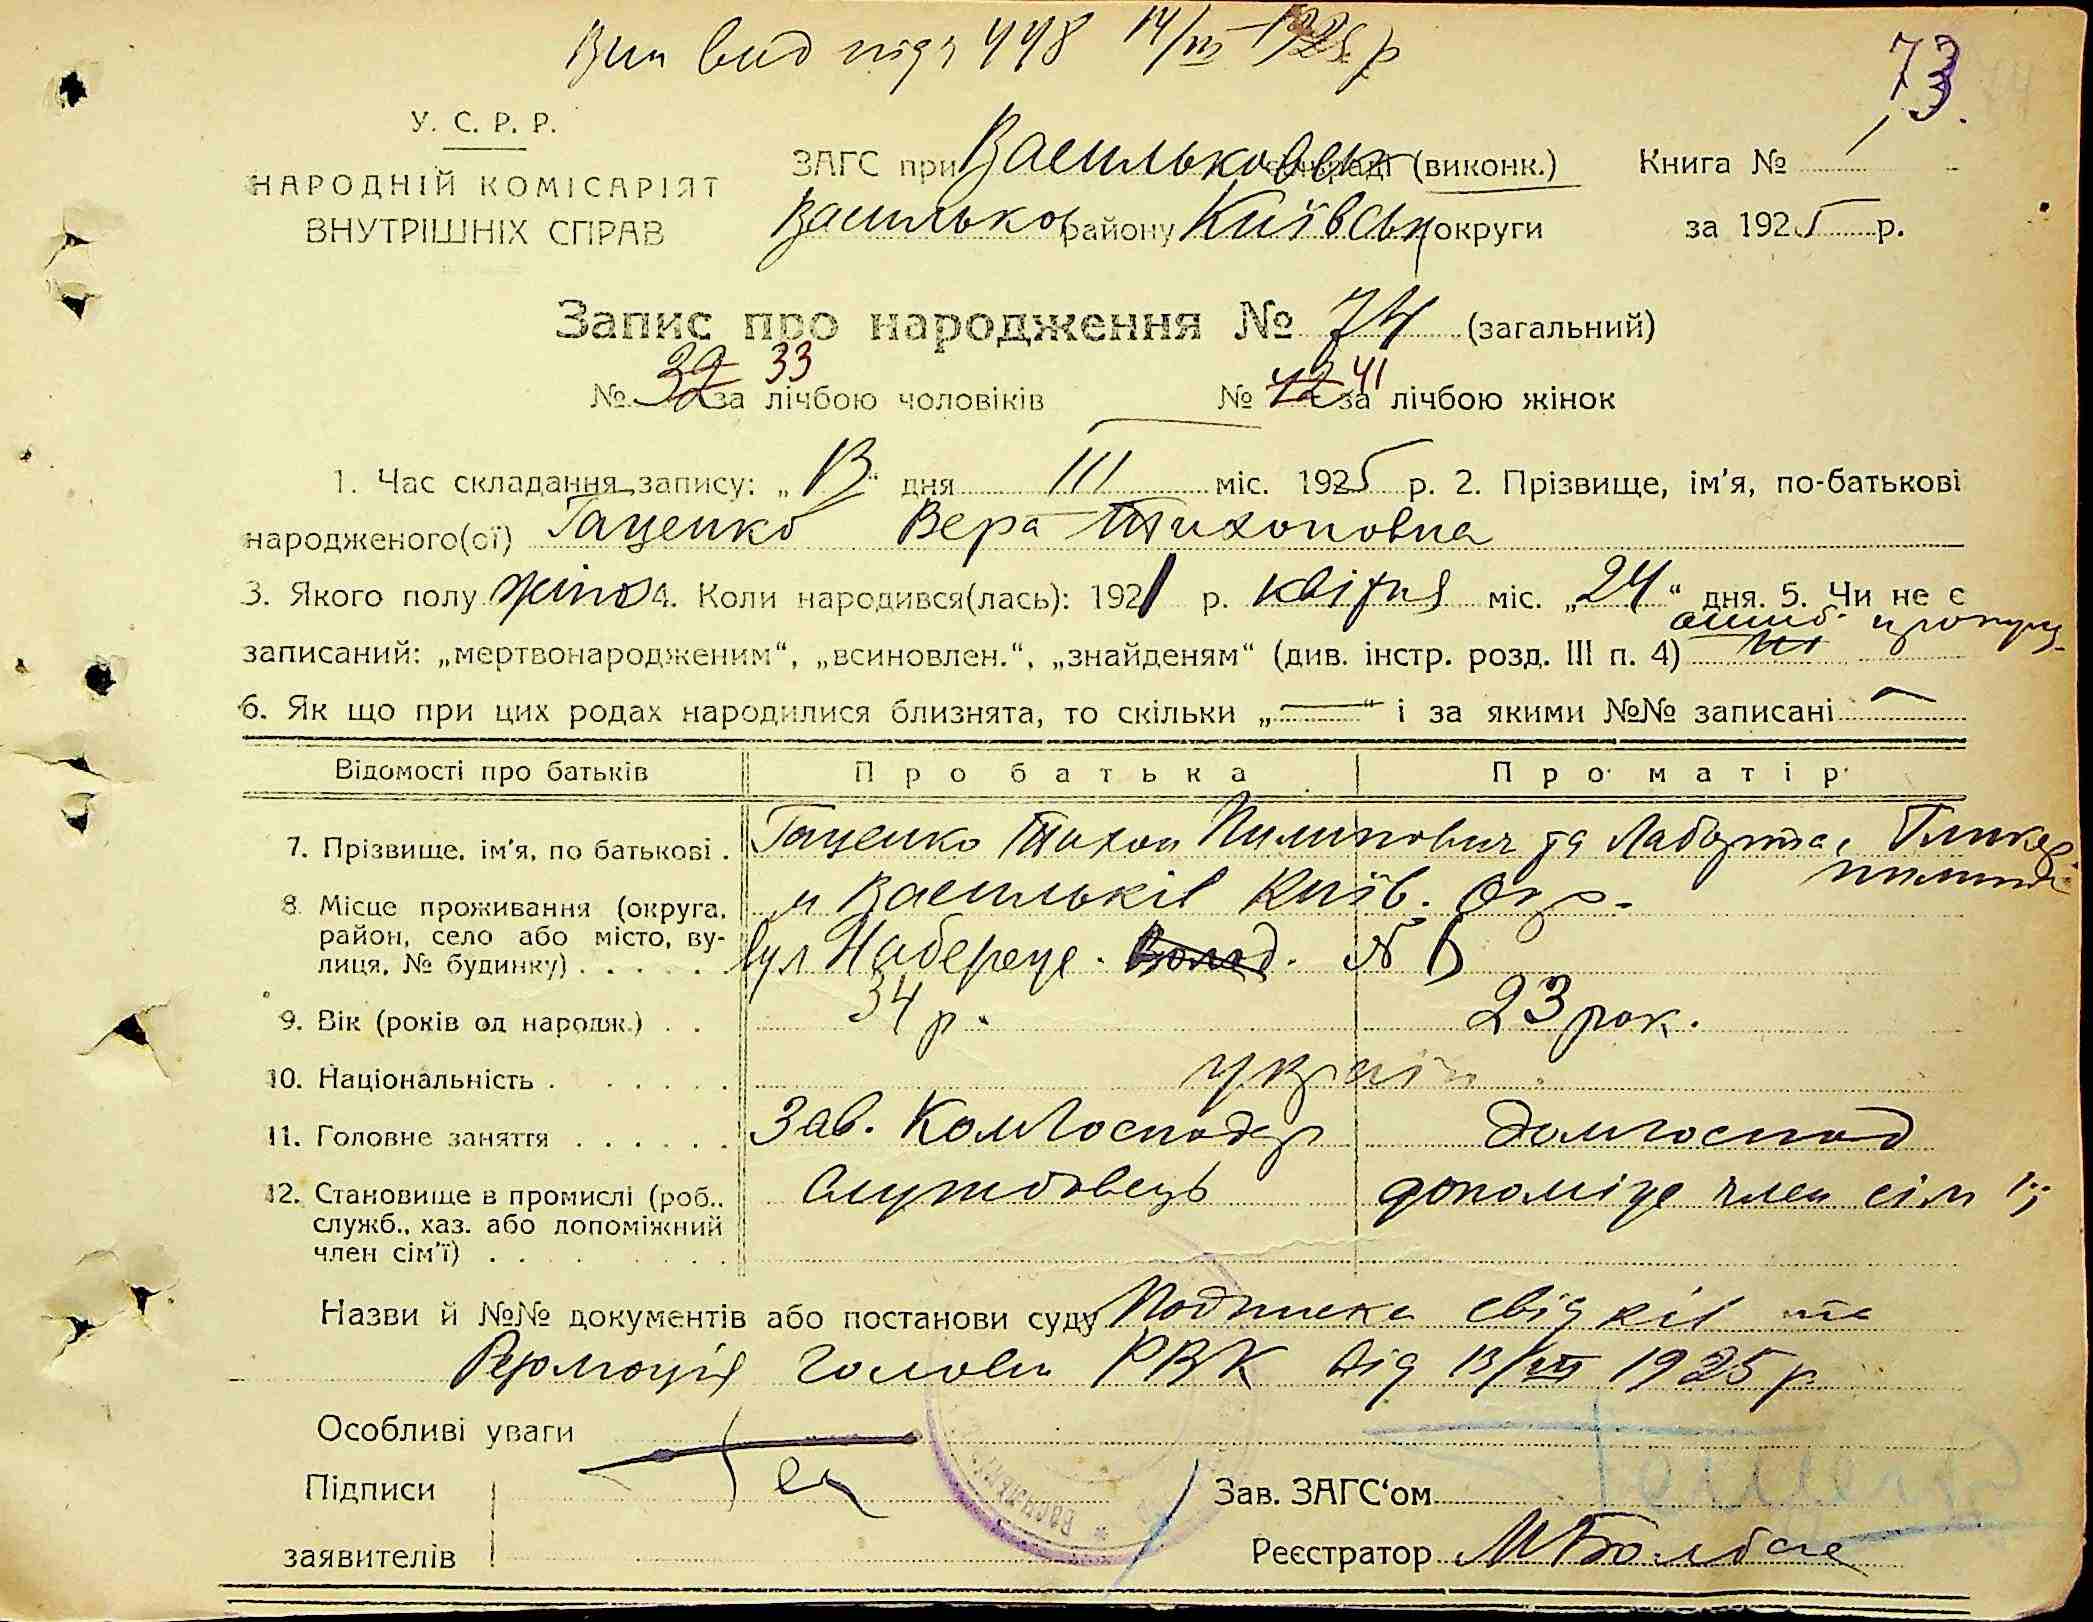 Вип вид під ч 448 14/III 1925 р
73
У. С. Р. Р.
ЗАГС при Васильковск сельраді (виконк.) Книга № 1
НАРОДНІЙ КОМІСАРІЯТ
ВНУТРІШНІХ СПРАВ
Васильков району Київськ округи за 1925 р.
Запис про народження № 74 (загальний)
№ 32 33 за лічбою чоловіків № 42 41 за лічбою жінок
1. Час складання запису: „13" дня III міс. 1925 р. 2. Прізвище, ім'я, по-батькові
народженого(ої) Гаценко Вера Тихоновна
3. Якого полу жіно 4. Коли народився(лась): 1921 р. квітня міс. „24" дня. 5. Чи не є
записаний: „мертвонародженим", „всиновлен.", „знайденям" (див. інстр. розд. III п. 4) ні
6. Як що при цих родах народилися близнята, то скільки „—" і за якими №№ записані —
Відомості про батьків Про батька Про матір
7. Прізвище, ім'я, по батькові . Гаценко Тихон Пилипович та
8. Місце проживання (округа, м Васильків Київ. Окр.
район, село або місто, ву-
лиця, № будинку) . . . . . вул Набереж. № 6
9. Вік (років од народж.) . . 34 р. 23 рок.
10. Національність . . . . . . україн
11. Головне заняття . . . . . . Зав. Комгосподар домгоспод
12. Становище в промислі (роб., Службовець допоміже член сімї
служб., хаз. або допоміжний
член сім'ї) . . . . . . .
Назви й №№ документів або постанови суду Подписка свідків та
Резолюція голови РВК від 13/III 1925 р.
Особливі уваги
Підписи
Зав. ЗАГС'ом
заявителів
Реєстратор